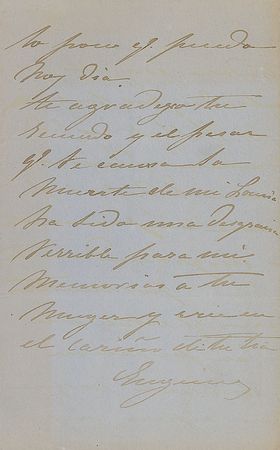 lo poco q. puedo
hoy dia.
Te agradezco tu
recuerdo y el pesar
q. te causa la
muerte de mi Louisa
ha sido una desgracia
terrible para mi.
Memorias a tu
muger y cree en
el cariño de tu tia
Eugenia